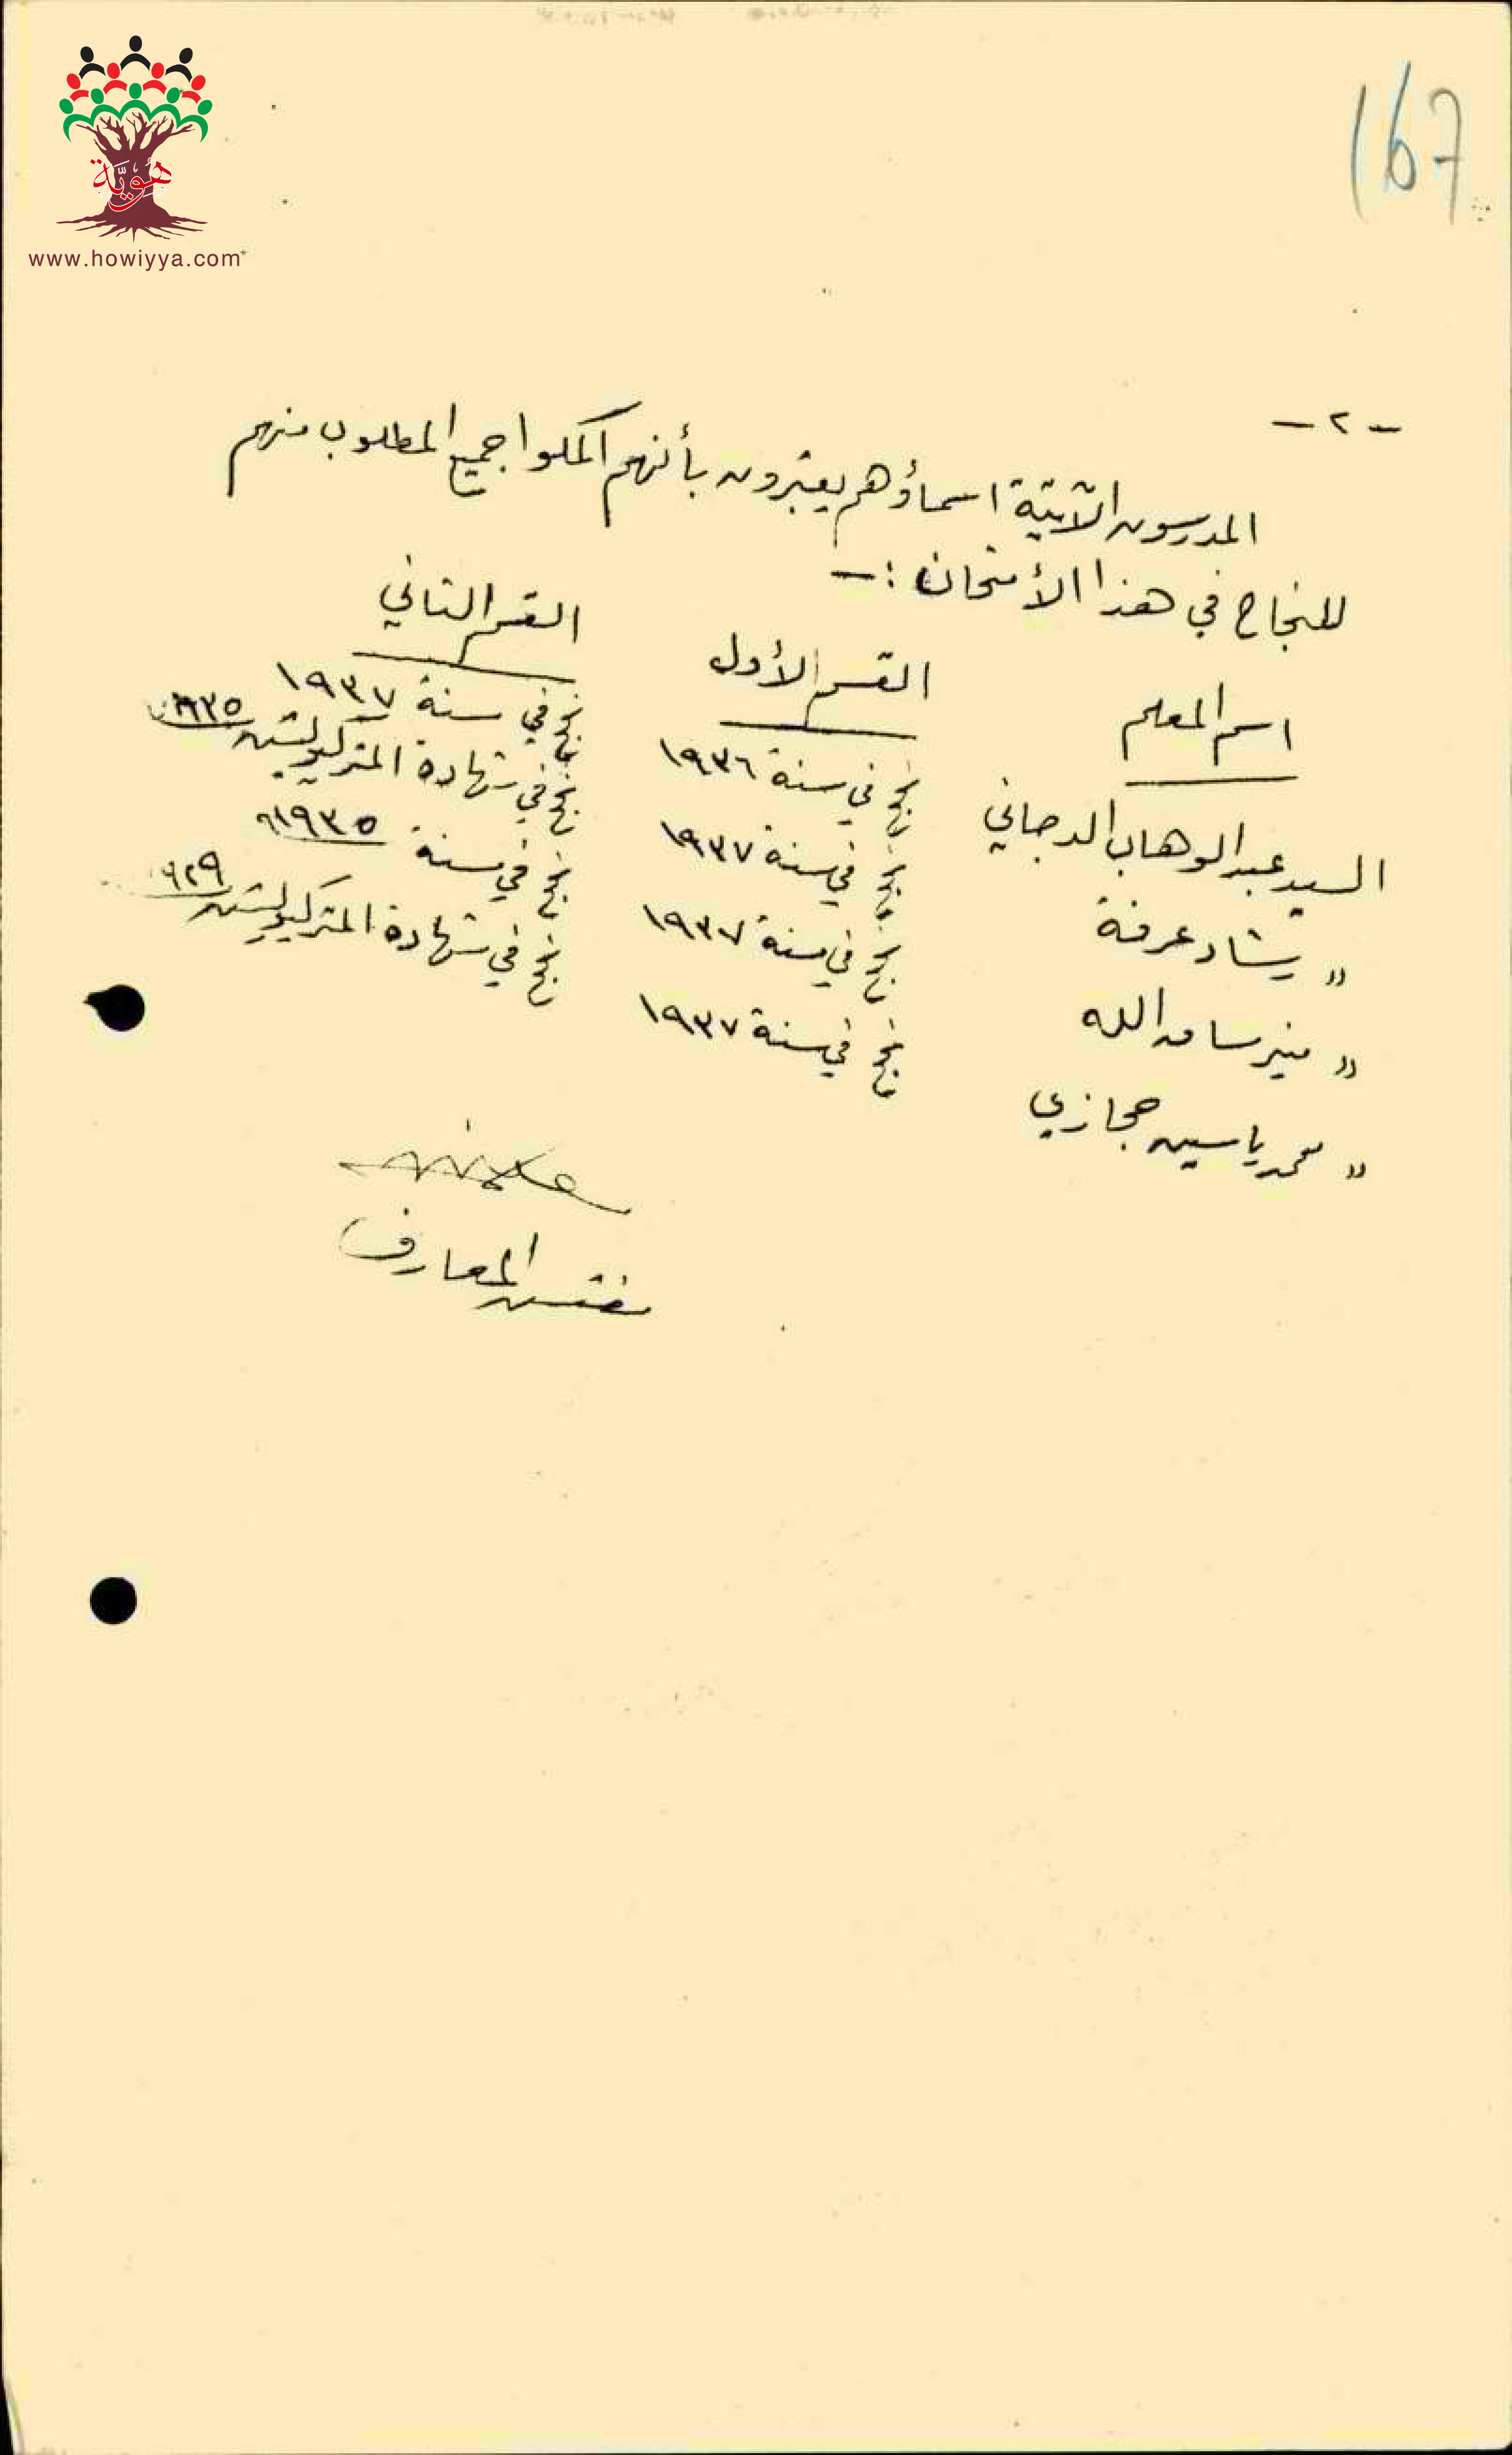 هوية
www.howiyya.com
167
- ٢ -
المدرسون الآتية اسماؤهم يعتبرون بأنهم اكملوا جميع المطلوب منهم
للنجاح في هذا الأمتحان :-
اسم المعلم القسم الأول القسم الثاني
السيد عبد الوهاب الدجاني نجح في سنة ١٩٣٦ نجح في سنة ١٩٣٧
〃 رشاد عرفة نجح في سنة ١٩٣٧ نجح في شهادة المتركيوليشن
〃 منير سامه الله نجح في سنة ١٩٣٧ نجح في سنة ١٩٣٥
〃 محمد ياسين حجازي نجح في سنة ١٩٣٧ نجح في شهادة المتركيوليشن
مفتش المعارف